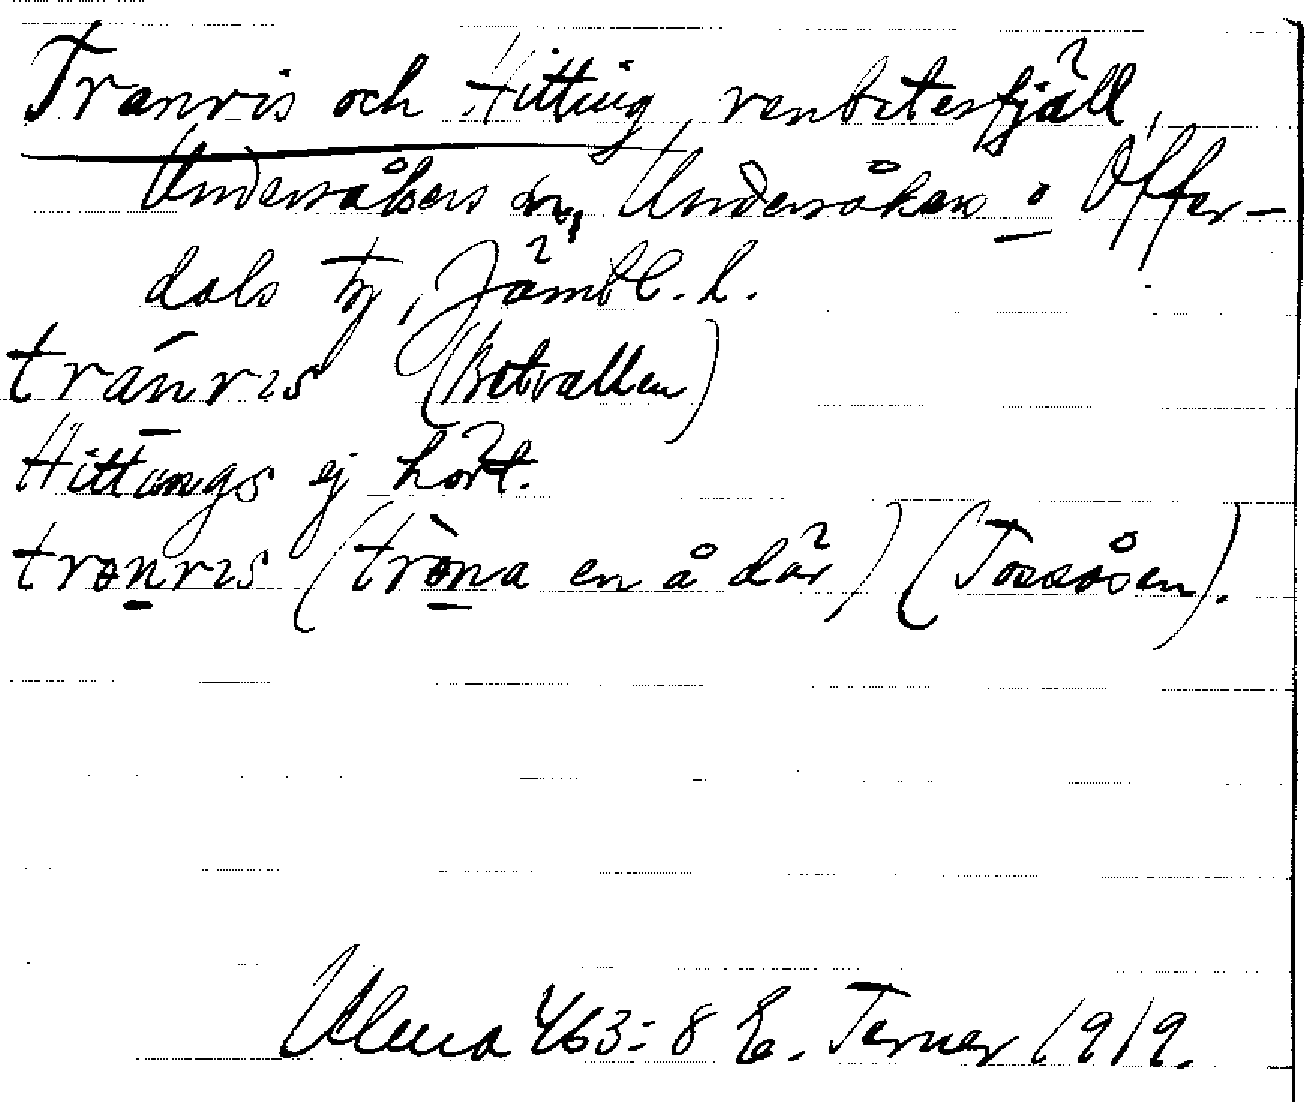 Tranris och Hitting, renbetesfjäll,
Undersåkers sn, Undersåkers o Offer-
dals tg, Jämtl. l.
tránris (Botvallen)
Hittings ej hört.
trənris (trə̀na en å där) (Tossåsen).
Ulma 463:8 E. Terner 1919.